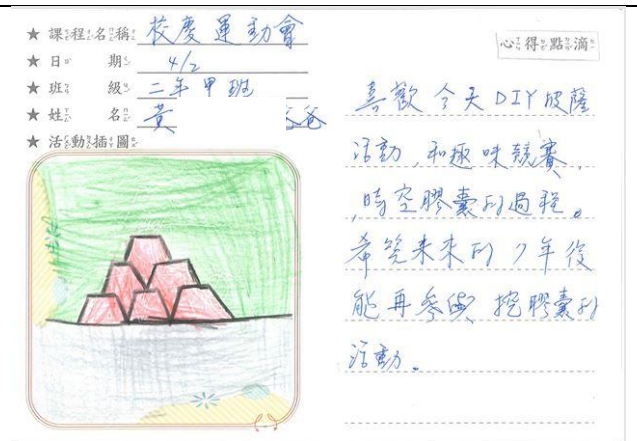 ★ 課程名稱: 校慶運動會
★ 日期: 4/2
★ 班級: 二年甲班
★ 姓名: 黃 爸
★ 活動插圖:
心得點滴
喜歡今天DIY披薩
活動,和趣味競賽,
,時空膠囊的過程。
希望未來的7年後
能再參與挖膠囊的
活動。